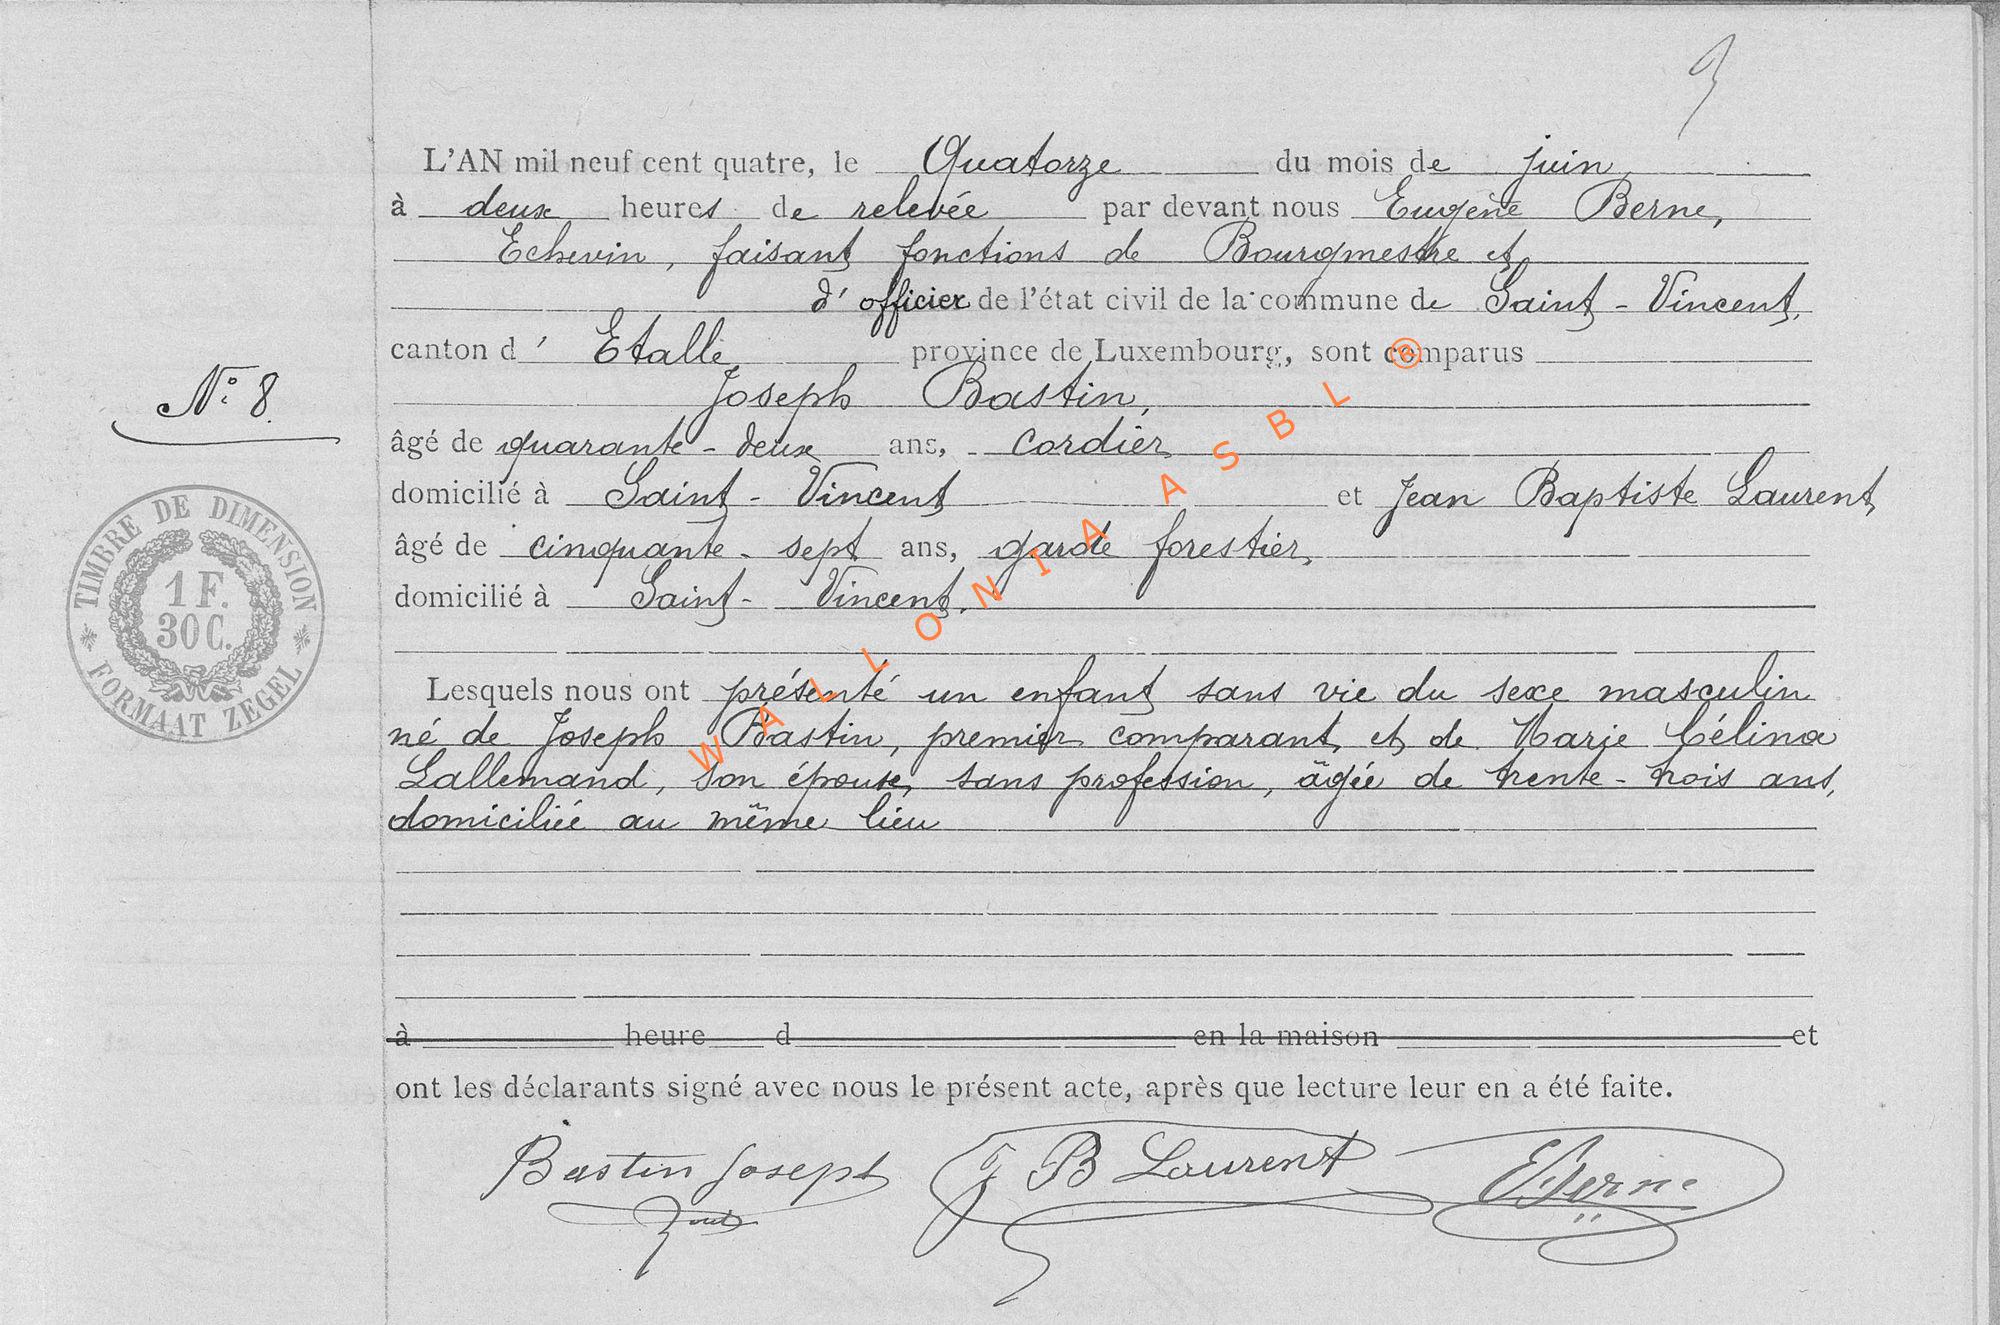 L'AN mil neuf cent quatre, le Quatorze du mois de juin
à deux heures de relevée par devant nous Eugène Berne,
Echevin, faisant fonctions de Bourgmestre et
d'officier de l'état civil de la commune de Saint-Vincent,
canton d' Etalle province de Luxembourg, sont comparus
Joseph Bastin,
N° 8.
âgé de quarante-deux ans, cordier
domicilié à Saint-Vincent et Jean Baptiste Laurent,
âgé de cinquante-sept ans, garde forestier,
domicilié à Saint-Vincent.
TIMBRE DE DIMENSION
1 F.
30 C.
FORMAAT ZEGEL
Lesquels nous ont présenté un enfant sans vie du sexe masculin
né de Joseph Bastin, premier comparant et de Marie Célina
Lallemand, son épouse, sans profession, âgée de trente-trois ans,
domiciliée au même lieu
à heure d en la maison et
ont les déclarants signé avec nous le présent acte, après que lecture leur en a été faite.
Bastin Joseph J B Laurent E Berne
WALLONIA ASBL ®